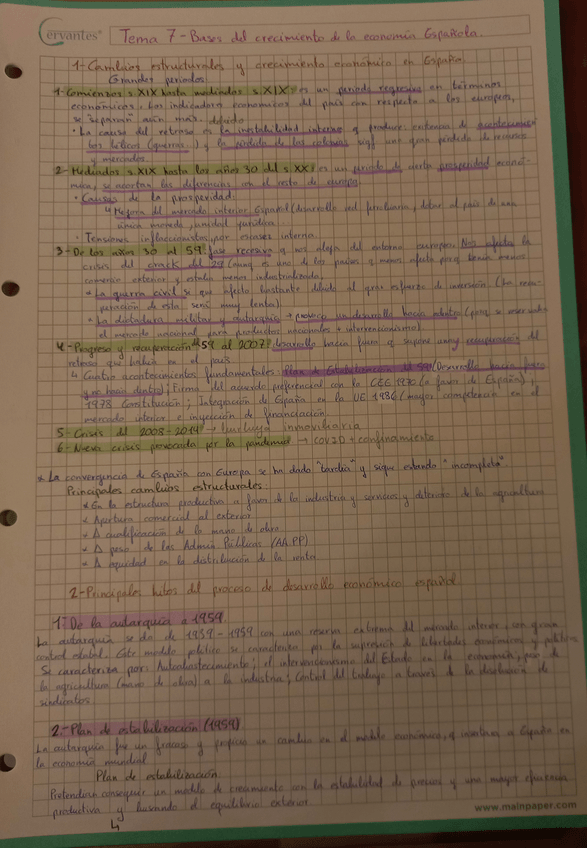 Cervantes®
Tema 7 - Bases del crecimiento de la economía Española.
1- Cambios estructurales y crecimiento económico en España
Grandes periodos
1- Comienzos s XIX hasta mediados s XIX: es un periodo regresivo en términos
económicos. Los indicadores económicos del país con respecto a los europeos,
se "separan" aún más. debido
· La causa del retraso es la inestabilidad interna
los bélicos (guerras) y la pérdida de las colonias sigf una gran pérdida de recursos
y mercados.
2- Mediados s XIX hasta los años 30 del s XX: es un periodo de cierta prosperidad econó-
mica, se acortan las diferencias con el resto de europa.
· Causas de la prosperidad:
↳ Mejora del mercado interior Español (desarrollo red ferroviaria, dotar al país de una
única moneda, unidad jurídica
· Tensiones inflaccionistas por crisis interna
3- De los años 30 al 59: fase recesiva q nos aleja del entorno europeo. Nos afecta la
crisis del crack del 29 (aunq es uno de los países q menos afecta porq tenía menos
comercio exterior y estaba menos industrializado.
* La guerra civil sí que afecta bastante debido al gran esfuerzo de inversión. (La recu-
peración de esta será muy lenta)
* La dictadura militar y autarquía → provocó un desarrollo hacia adentro (porq se reservaba
el mercado nacional para productos nacionales + intervencionismo).
4- Progreso y recuperación 59 al 2007: desarrollo hacia fuera q supone una recuperación del
retraso que había en el país
↳ Cuatro acontecimientos fundamentales: Plan de Estabilización del 59 (Desarrollo hacia fuera
y no hacia dentro); Firma del acuerdo preferencial con la CEE 1970 (a favor de España);
1978 Constitución; Integración de España en la UE 1986 (mayor competencia en el
mercado interior e inyección de financiación
5- Crisis del 2008-2014 → burbuja inmoviliaria
6- Nueva crisis provocada por la pandemia → COVID + confinamiento
* La convergencia de España con Europa se ha dado "tardía" y sigue estando "incompleta"
Principales cambios estructurales
* En la estructura productiva a favor de la industria y servicios y deterioro de la agricultura
* Apertura comercial al exterior
* Δ cualificación de la mano de obra
* Δ peso de las Admin Públicas (AA.PP)
* Δ equidad en la distribución de la renta
2- Principales hitos del proceso de desarrollo económico español
1- De la autarquía a 1959
La autarquía se da de 1939-1959 con una reserva extrema del mercado interior, con gran
control estatal. Este modelo político se caracteriza por la supresión de libertades económicas y políticas
Se caracteriza por: Autoabastecimiento; el intervencionismo del Estado en la economía; paso de
la agricultura (mano de obra) a la industria; Control del trabajo a través de la disolución de
sindicatos
2.- Plan de estabilización (1959)
La autarquía fue un fracaso y propició un cambio en el modelo económico, q insertara a España en
la economía mundial
Plan de estabilización
Pretendían conseguir un modelo de crecimiento con la estabilidad de precios y una mayor eficiencia
productiva y buscando el equilibrio exterior
↳
www.mainpaper.com